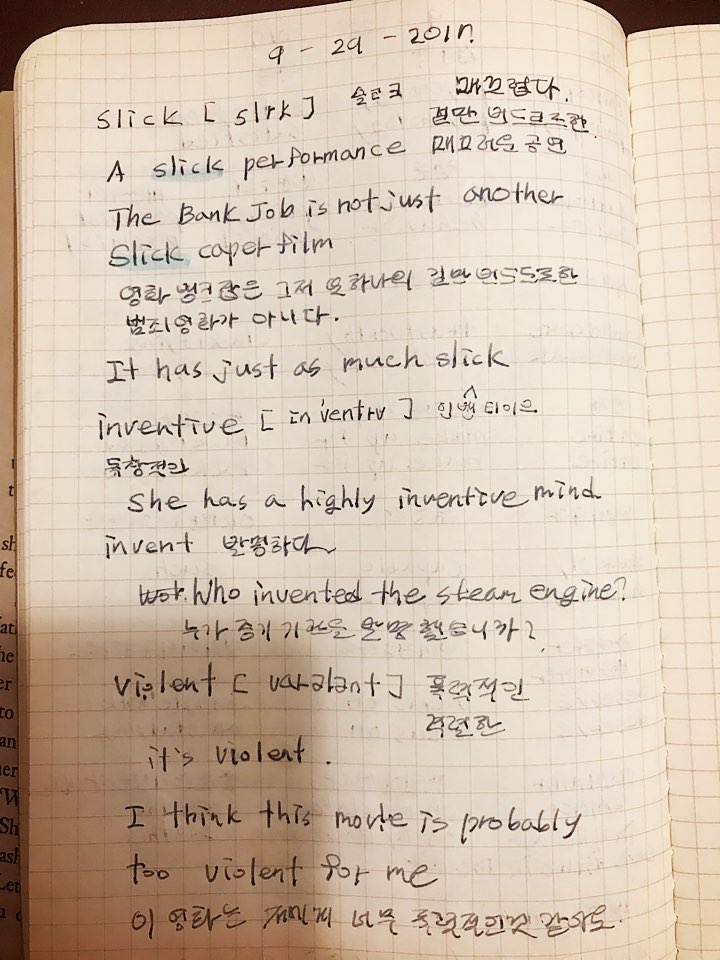 9 - 29 - 2017.
slick [ slɪk ] 슬르크 매끄럽다.
겉만 번드르르한
A slick performance 매끄러운 공연
The Bank Job is not just another
slick caper film
영화 뱅크잡은 그저 또하나의 겉만 번드르르한
범죄영화가 아니다.
It has just as much slick
inventive [ in'ventɪv ] 인벤티이브
독창적인
She has a highly inventive mind
invent 발명하다
Who invented the steam engine?
누가 증기 기관을 발명 했습니까?
violent [ vaɪələnt ] 폭력적인
격렬한
it's violent.
I think this movie is probably
too violent for me
이 영화는 저에게 너무 폭력적인것 같아요.